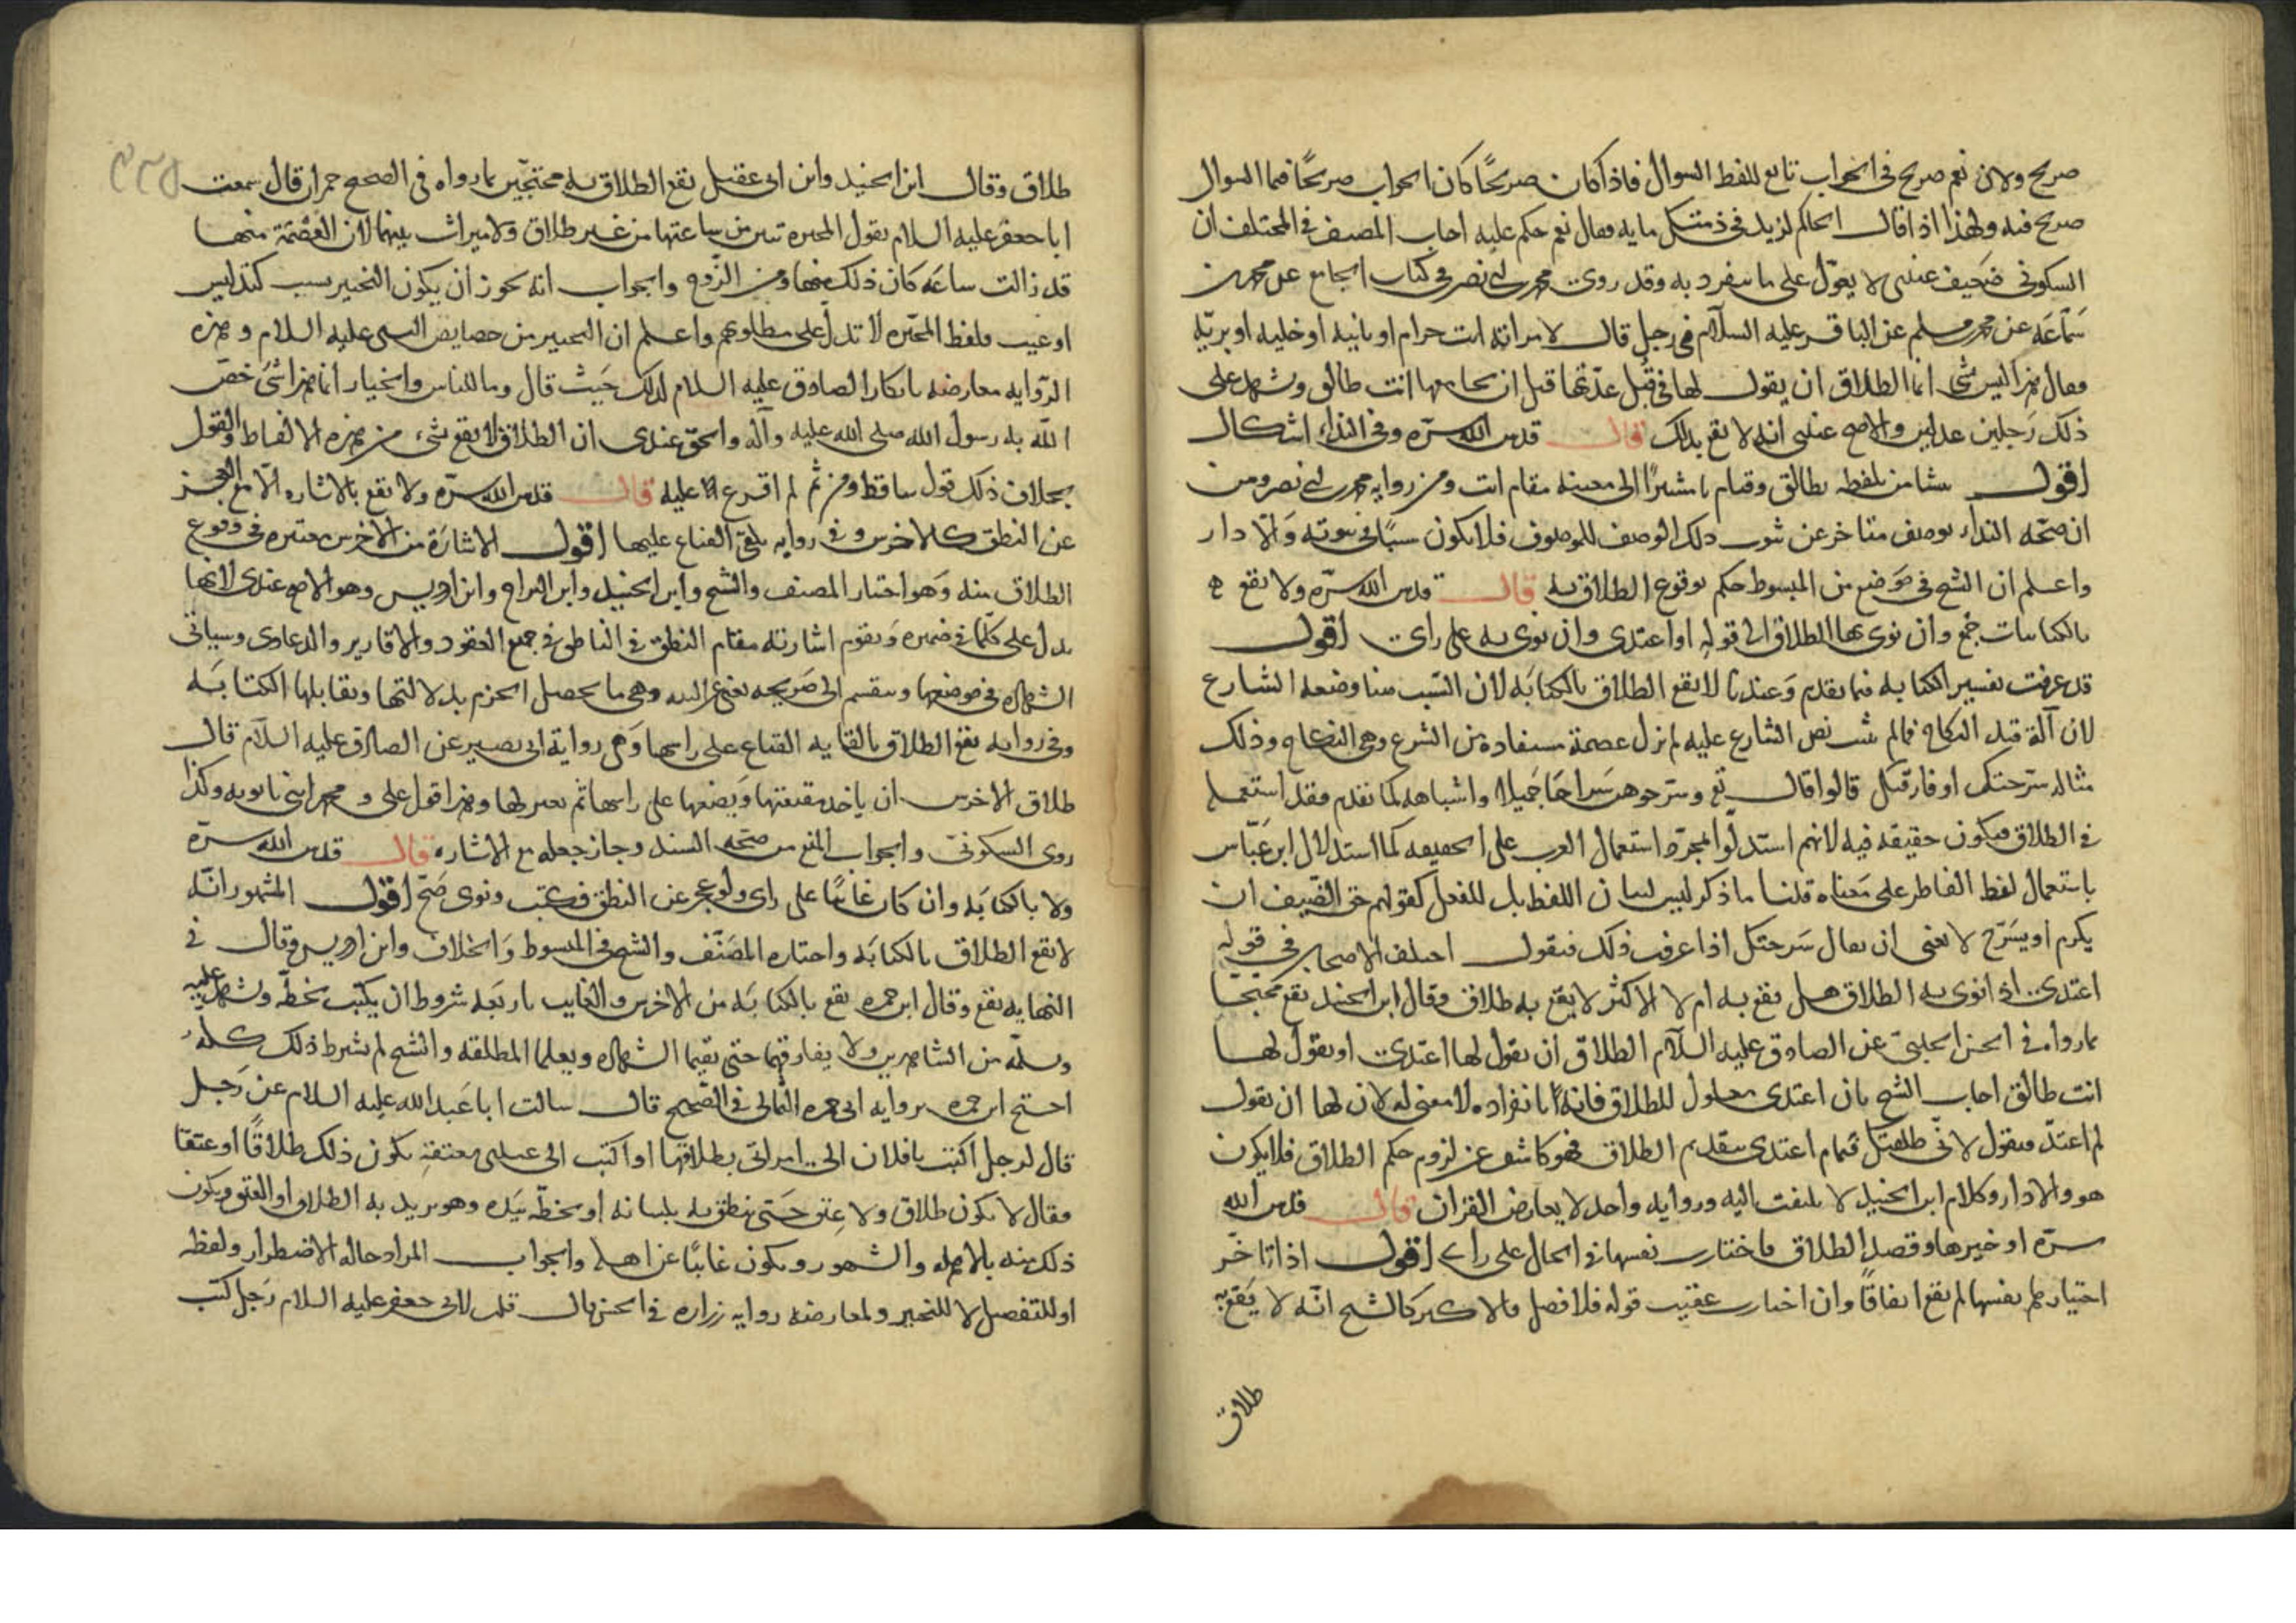 صريح ولان نعم صريح في الجواب تابع للفظ السوال فاذا كان صريحًا كان الجواب صريحًا فما السوال
صريح فيه ولهذا اذا قال الحاكم لزيد في ذمتك مايه فقال نعم حكم عليه اجاب المصنف في المختلف ان
السكوني ضعيف عندي لا يعوّل على ما ينفرد به وقد روى محمد بن ابي نصر في كتاب الجامع عن محمد بن
سَمّاعَه عن محمد بن مسلم عن الباقر عليه السلام في رجل قال لامراته انت حرام او بانيه او خليه او بريّه
فقال هذا ليس بشي انما الطلاق ان يقول لها في قُبل عدّتها قبل ان يجامعها انت طالق ويشهد على
ذلك رَجلين عدلين والاصح عندي انه لا يقع بذلك قال قدس الله سرّه وفي النداء اشكال
اقول ينشا من تلفظه بطالق وقيام يا مشيرًا الى معينه مقام انت ومن روايه محمد بن ابي نصر ومن
ان صحّه النداء بوصف متاخر عن ثبوت ذلك الوصف للموصوف فلا يكون سببًا في ثبوته وَالّا دار
واعلم ان الشيخ في موَضع من المبسوط حكم بوقوع الطلاق به قال قدس الله سرّه ولا يقع
بالكنايات جُمع وان نوى بها الطلاق الى قوله او اعتدى وان نوى به على راى اقول
قد عرفت تفسير الكنايه فيما تقدم وَعندنا لا يقع الطلاق بالكنايَه لان السَبب منا وضعه الشارع
لازالة قيد النكاح فما لم ينص الشارع عليه لم نزل عصمة مستفادة من الشرع وهي النكاح وذلك
مثاله سرّحتك او فارقتك قالوا قال تع وسرّحوهن سَراحًا جَميلا واشباهه كما تقدم فقد استعمل
في الطلاق فيكون حقيقه فيه لانهم استدلّوا بمجرّد استعمال العرب على الحقيقه كما استدلال ابن عَبّاس
باستعمال لفظ الفاطر على مَعناه قلنا ما ذكر ليس لبيان اللفظ بل للفعل كقولهم حق الضيف ان
يكرم او يسَرّح لا يعنى ان يقال سَرحتك اذا عرفت ذلك فنقول اختلف الاصحاب في قوله
اعتدى اذا نوى به الطلاق هل يقع به ام لا الاكثر لا يقع به طلاق وقال ابن الجنيد يقع محتجّا
بما رواه في الحسن الحلبي عن الصادق عليه السلام الطلاق ان يقول لها اعتدى او يقول لها
انت طالق اجاب الشيخ بان اعتدى معلول للطلاق فانه بانفراده لا معنى له لان لها ان تقول
لم اعتدّ فيقول لانى طلقتك قمام اعتدى بتقديم الطلاق فهو كاشف عن لزوم حكم الطلاق فلا يكون
هو والا دار وكلام ابن الجنيد لا يلتفت اليه وروايه واحد لا يعارض القران قال قدس الله
سرّه او خيرها وقصد الطلاق فاختارت نفسها في الحال على راى اقول اذا تاخّر
اختيارها نفسها لم يقع اتفاقًا وان اختارت عقيب قوله فلا فصل فالاكثر كالشيخ انّه لا يَقع به
طلاق
طلاق وقال ابن الجنيد وابن ابي عقيل يقع الطلاق به محتجّين بما رواه في الصحيح حمران قال سمعت
ابا جعفر عليه السلام يقول المخيره تبين من ساعتها من غير طلاق ولا ميراث بينهما لان العِصْمَة منها
قد زالت ساعَه كان ذلك منها ومن الزوج والجواب انه يجوز ان يكون التخيير بسبب كتدليس
او عيب فلفظ المخيّره لا تدل على مطلوبهم واعلم ان التخيير من خصايص النبي عليه السلام وهذه
الرّوايه معارضه بانكار الصادق عليه السلام لذلك حَيث قال وما للناس والخيار انما هذا شَئ خصّ
الله به رسول الله صلى الله عليه وآله والحق عندى ان الطلاق لا يقع بشئ من هذه الالفاظ والقول
بخلاف ذلك قول ساقط ومن ثم لم افرع انا عليه قال قدس الله سرّه ولا يقع بالاشاره الّا مع العجز
عن النطق كالاخرس وفي روايه يلقى القناع عليها اقول الاشارَة من الاخرس معتبره في وقوع
الطلاق منه وَهو اختيار المصنف والشيخ وابن الجنيد وابن البراج وابن ادريس وهو الاصح عندى لانها
تدل على كلما في ضميره وَيقوم اشارته مقام النطق في الناطق في جميع العقود والاقارير والدعاوى وسياتى
الشهاده في موضعها وينقسم الى صَريحه وهي ما يحصل الجزم بدلالتها ويقابلها الكنايَه
وفي روايه يقع الطلاق بالقايه القناع على راسها وَهي رواية ابي بصير عن الصادق عليه السلام قال
طلاق الاخرس ان ياخذ مقنعتها وَيضعها على راسها ثم يعتزلها وهذا قول على ومحمد ابني بابويه وكذا
روى السكونىّ والجواب المنع من صحّه السند وجاز جعله مع الاشاره قال قدس الله سرّه
ولا بالكتابَه وان كان غائبًا على راى ولو عجز عن النطق فكتب ونوى صَحّ اقول المشهور انّه
لا يقع الطلاق بالكتابَه واختاره المصَنّف والشيخ في المبسوط وَالخلاف وابن ادريس وقال في
النهايه يقع وقال ابن حمزه يقع بالكتابَه من الاخرس والغايب باربَعه شروط ان يكتب بخطّه ويشهد عليه
ويسلّه من الشاهدين ولا يفارقهما حتى يقيما الشهاده ويعلما المطلقه والشيخ لم يشرط ذلك كلّه
احتج ابن حمزه بروايه ابي حمزه الثمالى في الصّحيح قال سالت ابا عَبد الله عليه السلام عن رَجل
قال لرجل اكتب يا فلان الى امراتى بطلاقها او اكتب الى عبدى بعتقهِ يكون ذلك طلاقًا او عتقا
فقال لا يكون طلاق ولا عِتق حَتى ينطق به بلسانه او بخطّه بيَده وهو يريد به الطلاق او العتق ويكون
ذلك منه بالاهله والشهور ويكون غائبًا عن اهله والجواب المراد حاله الاضطرار ولفظه
او للتفصيل لا للتخيير ولمعارضه روايه زراره في الحسن قال قلت لابى جعفر عليه السلام رَجل كتب